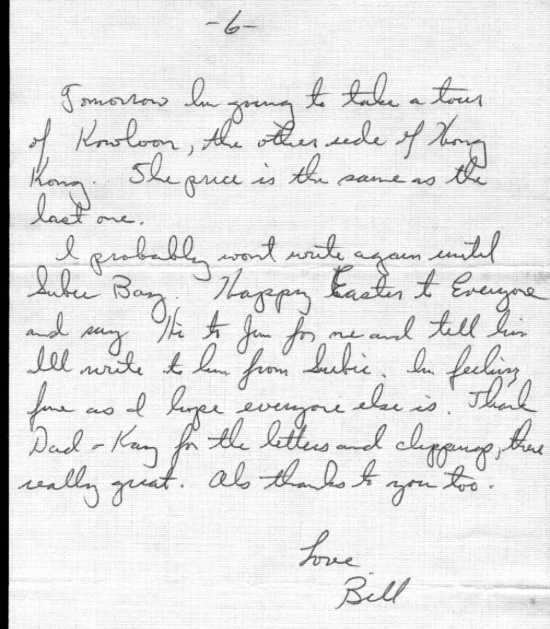 -6-
Tomorrow Im going to take a tour
of Kowloon, the other side of Hong
Kong. The price is the same as the
last one.
I probably wont write again until
Subic Bay. Happy Easter to Everyone
and say Hi to Jim for me and tell him
Ill write to him from Subic. Im feeling
fine as I hope everyone else is. Thank
Dad - Kay for the letters and clippings, there
really great. Als thanks to you too.
Love
Bill